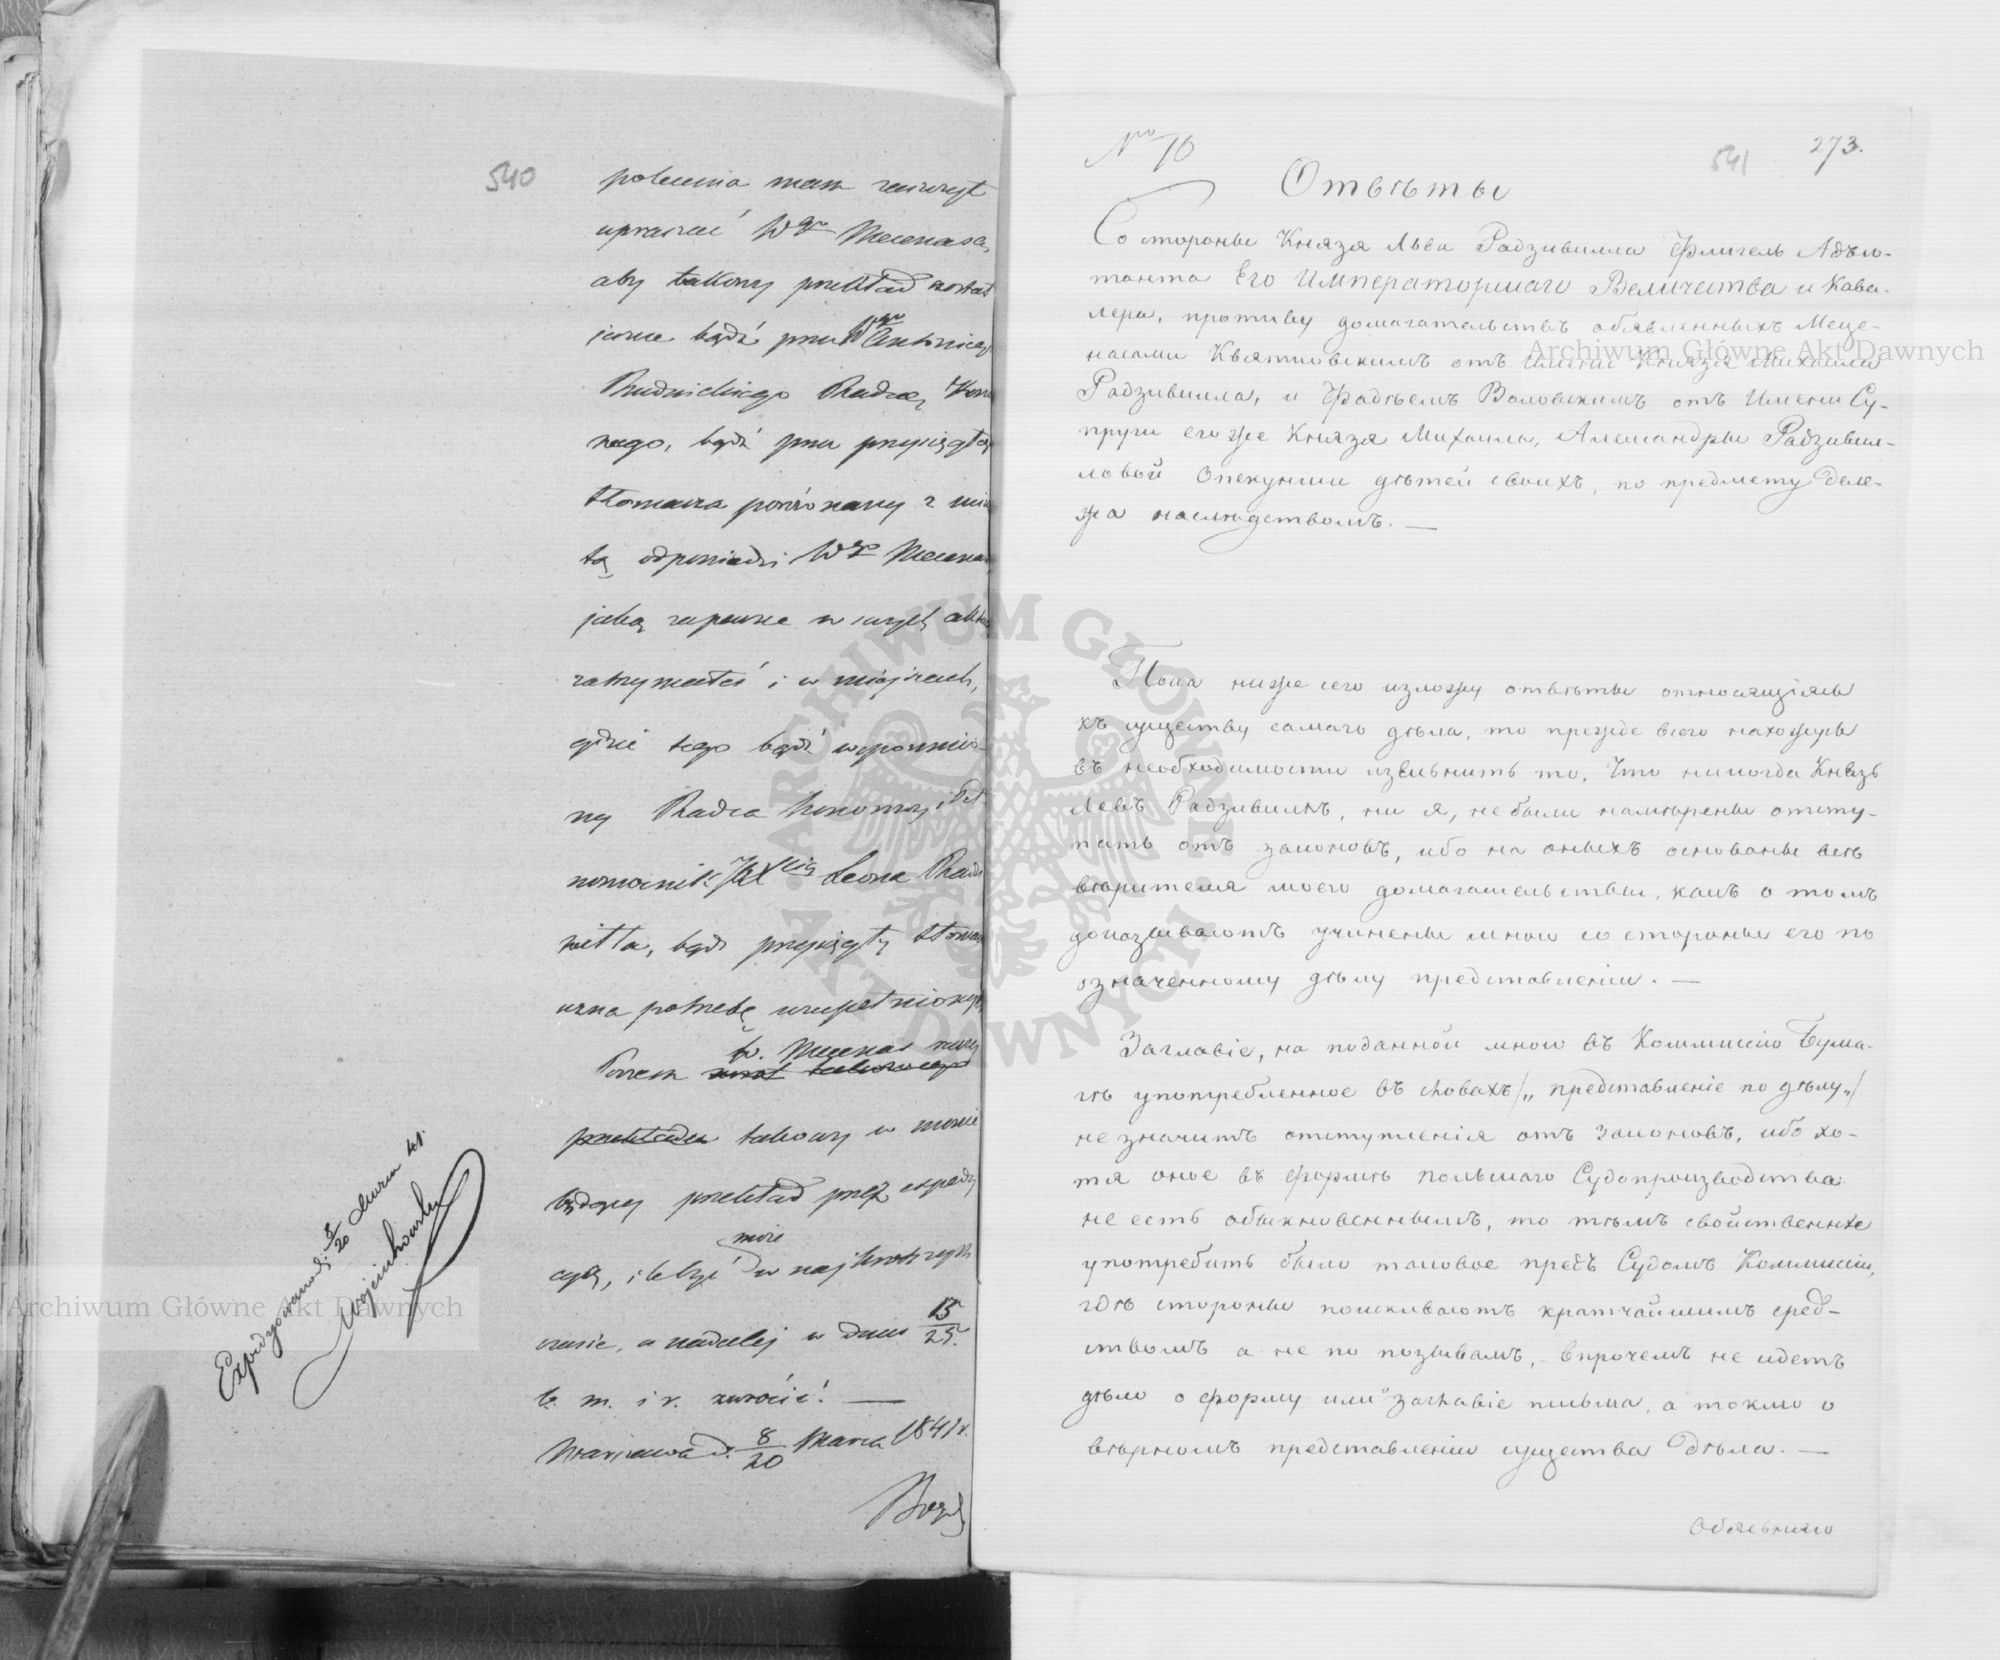 540
polecenia mam zaszczyt
upraszać Wgo Mecenasa,
aby takowy przekład został
jeszcze bądź przez Wgo Antoniego
Rudnickiego Radcę Hono
rowego, bądź przez przysięgłego
tłomacza porównany z
tą odpowiedzi Wgo Mecenasa
jaką zapewne w swych aktach
zatrzymałeś i w miejscach,
gdzie tego bądź wspomnio-
ny Radca honorowy i Peł-
nomocnik JOXcia Leona Radzi
wiłła, bądź przysięgły tłomacz
uzna potrzebę uzupełniony
W. Mecenas raczy
Poczem
przekładu takowy w mowie
będący przekład przez expedy
cyą, i ileżyć może w najkrótszym
czasie, a nadalej w dniu 13/25.
b. m. i r. zwrócić! —
Warszawa d. 8/20 Marca 1841 r.
Expedyowano d. 8/20 Marca 41.
Wojciechowski
No 10
541
273.
Отвѣты
Со стороны Князя Льва Радзивилла Флигель Адъю-
танта Его Императорскаго Величества и Кава-
лера, противу домагательствъ объявленныхъ Меце-
насами Квятковскимъ отъ имени Князя Михаила
Радзивилла, и Фадѣемъ Воловскимъ отъ Имени Су-
пруги его же Князя Михаила, Александры Радзивил-
ловой Опекунши дѣтей своихъ, по предмету деле-
жа наслѣдствомъ. —
Пока ниже сего изложу отвѣты относящіясь
къ существу самаго дѣла, то прежде всего нахожусь
въ необходимости изъяснить то, Что никогда Князь
Левъ Радзивилъ, ни я, не были намѣрены отсту-
пать отъ законовъ, ибо на оныхъ основаны всѣ
вѣрителя моего домагательствы, какъ о томъ
доказываютъ учиненые мною со стороны его по
означенному дѣлу представленіи. —
Заглавіе, на поданной мною въ Коммисію Бума-
гѣ употребленное въ словахъ /„ представленіе по дѣлу „/
не значитъ отступленія отъ Законовъ, ибо хо-
тя оное въ формѣ польскаго Судопроизводства
не есть обыкновеннымъ, то тѣмъ свойственнѣе
употребить было таковое предъ Судомъ Коммисіи,
гдѣ стороны поискиваютъ кратчайшимъ сред-
ствомъ а не по позывамъ, впрочемъ не идетъ
дѣло о форму или заглавіе письма, а токмо о
вѣрномъ представленіи существа дѣла. —
Объясняю
Archiwum Główne Akt Dawnych
Archiwum Główne Akt Dawnych
ARCHIWUM GŁÓWNE AKT DAWNYCH